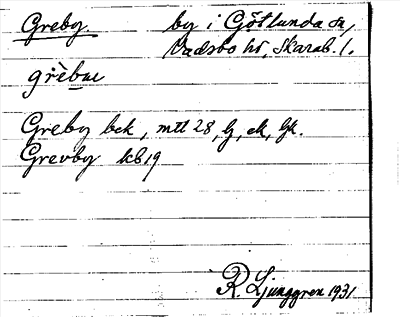 Greby. by i Götlunda sn,
Vadsbo hd, Skarab. l.
grèbu
Greby bck, mtl 28, ly, ek, Gk.
Grevby kb19
R. Ljunggren 1931